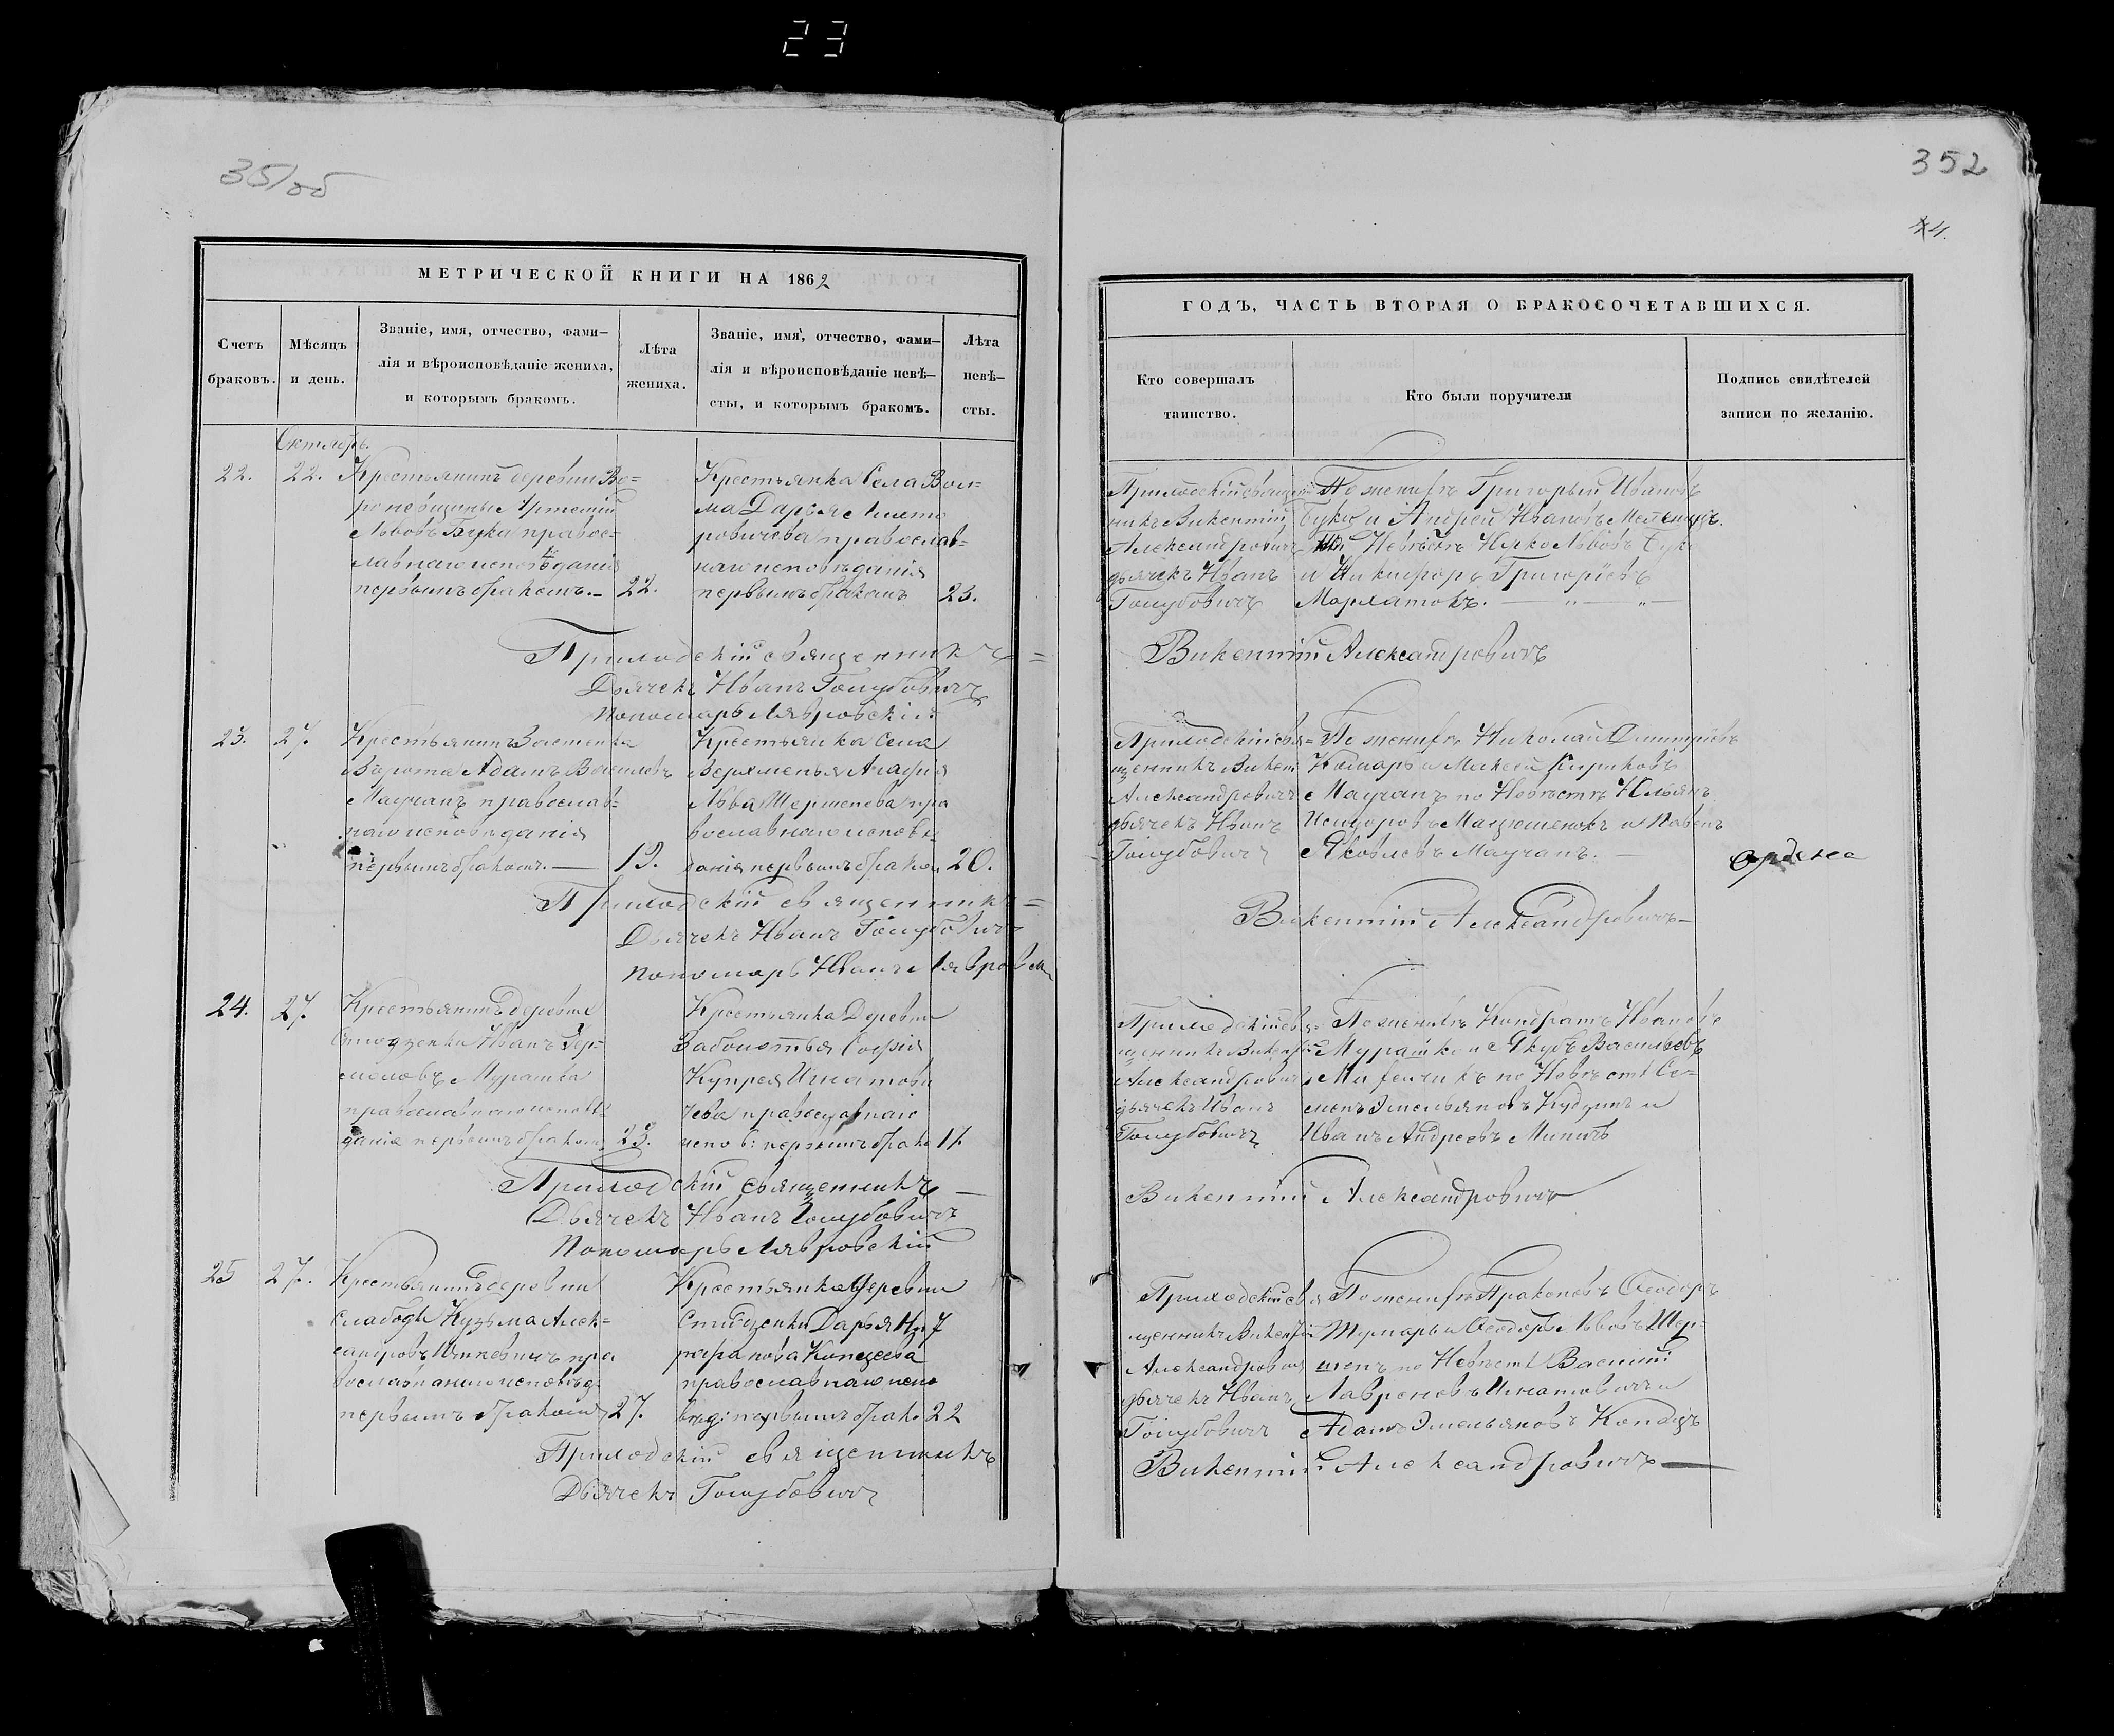 23
35/об
МЕТРИЧЕСКОЙ КНИГИ НА 1862
Счетъ
браковъ.
Мѣсяцъ
и день.
Званіе, имя, отчество, фами-
лія и вѣроисповѣданіе жениха,
и которымъ бракомъ.
Лѣта
жениха.
Званіе, имя, отчество, фами-
лія и вѣроисповѣданіе невѣ-
сты, и которымъ бракомъ.
Лѣта
невѣ-
сты.
Октябрь.
22.
22.
Крестьянинъ деревни Во=
Артемій
Львовъ Бука правос=
лавнаго исповѣданія
первымъ бракомъ.-
22.
Крестьянка Села Вол=
ма Дарья
православ=
наго исповѣданія
первымъ бракомъ
23.
Приходскій священникъ =
Дьячекъ Иванъ Голубовичъ
Пономарь Лявровскій
23.
27.
Крестьянинъ Застенка
Адамъ Васильевъ
Маучанъ православ=
наго исповѣданія
первымъ бракомъ. —
19.
Крестьянка Села
Верхменья Агафія
Льва Шершенева пра
вославнаго исповѣ
данія первымъ браком
20.
Приходскій священникъ =
Дьячекъ Иванъ Голубовичъ
Пономарь Иванъ Лявровскі
24.
27.
Крестьянинъ Деревни
Иванъ Гер=
Мурашка
православнаго исповѣ
данія первымъ браком
23.
Крестьянка Деревни
Заболотья Софія
Купрея Игнатови
чева православнаго
испов: первымъ брако
17.
Приходскій священникъ —
Дьячекъ Иванъ Голубовичъ
Пономарь Лявровскій
25
27.
Крестьянинъ деревни
Слабоды Кузьма Алек=
сандровъ пра
вославнаго исповѣд
первымъ бракомъ
27.
Крестьянка Деревни
Дарья
Копецева
православнаго испо
вѣд: первымъ брако
22
Приходскій священникъ
Дьячекъ Голубовичъ
352
ГОДЪ, ЧАСТЬ ВТОРАЯ О БРАКОСОЧЕТАВШИХСЯ.
Кто совершалъ
таинство.
Кто были поручители
Подпись свидѣтелей
записи по желанію.
Приходскій священ
никъ Викентій
Александровичъ
дьячекъ Иванъ
Голубовичъ
По женихѣ Григорый Ивановъ
Бука и Андрей Ивановъ
Невѣстѣ Юрко Львовъ Бука
и Никифоръ Григоріевъ
Мархатокъ.
Викентій Александровичъ
Приходскій свя=
щенникъ Викен
Александровичъ
дьячекъ Иванъ
Голубовичъ
По женихѣ Николай Дмитріевъ
Комаръ и Кириковъ
Маучанъ по Невѣстѣ Юльянъ
Исидоровъ Мацюшенокъ и Павелъ
Яковлевъ Маучанъ. —
Викентій Александровичъ —
Приходскій свя=
щенникъ Викентій
Александровичъ
дьячекъ Иванъ
Голубовичъ
По женихѣ Кондратъ Ивановъ
Мурашко и Якубъ Васильевъ
по Невѣстѣ Се=
менъ Эмельяновъ Кудзинъ и
Иванъ Андреевъ Миничъ
Викентій Александровичъ
Приходскій свя
щенникъ Викентій
Александровичъ
дьячекъ Иванъ
Голубовичъ
По женихѣ Ѳеодоръ
и Ѳеодоръ Львовъ Шер=
шенъ по Невѣстѣ Василій
Лавреновъ Игнатовичъ и
Адамъ Эмельяновъ Копецъ
Викентій Александровичъ —